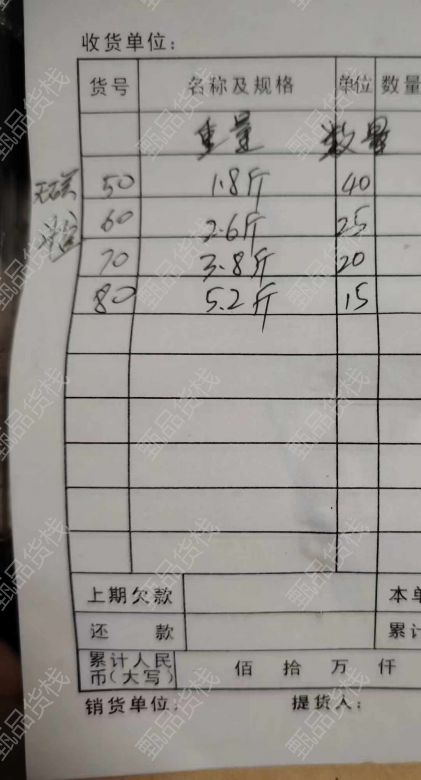 收货单位：
货号 名称及规格 单位 数量
重量 数量
50 1.8斤 40
60 2.6斤 25
70 3.8斤 20
80 5.2斤 15
上期欠款 本单
还 款 累计
累计人民币(大写) 佰 拾 万 仟
销货单位： 提货人：
甄品货栈